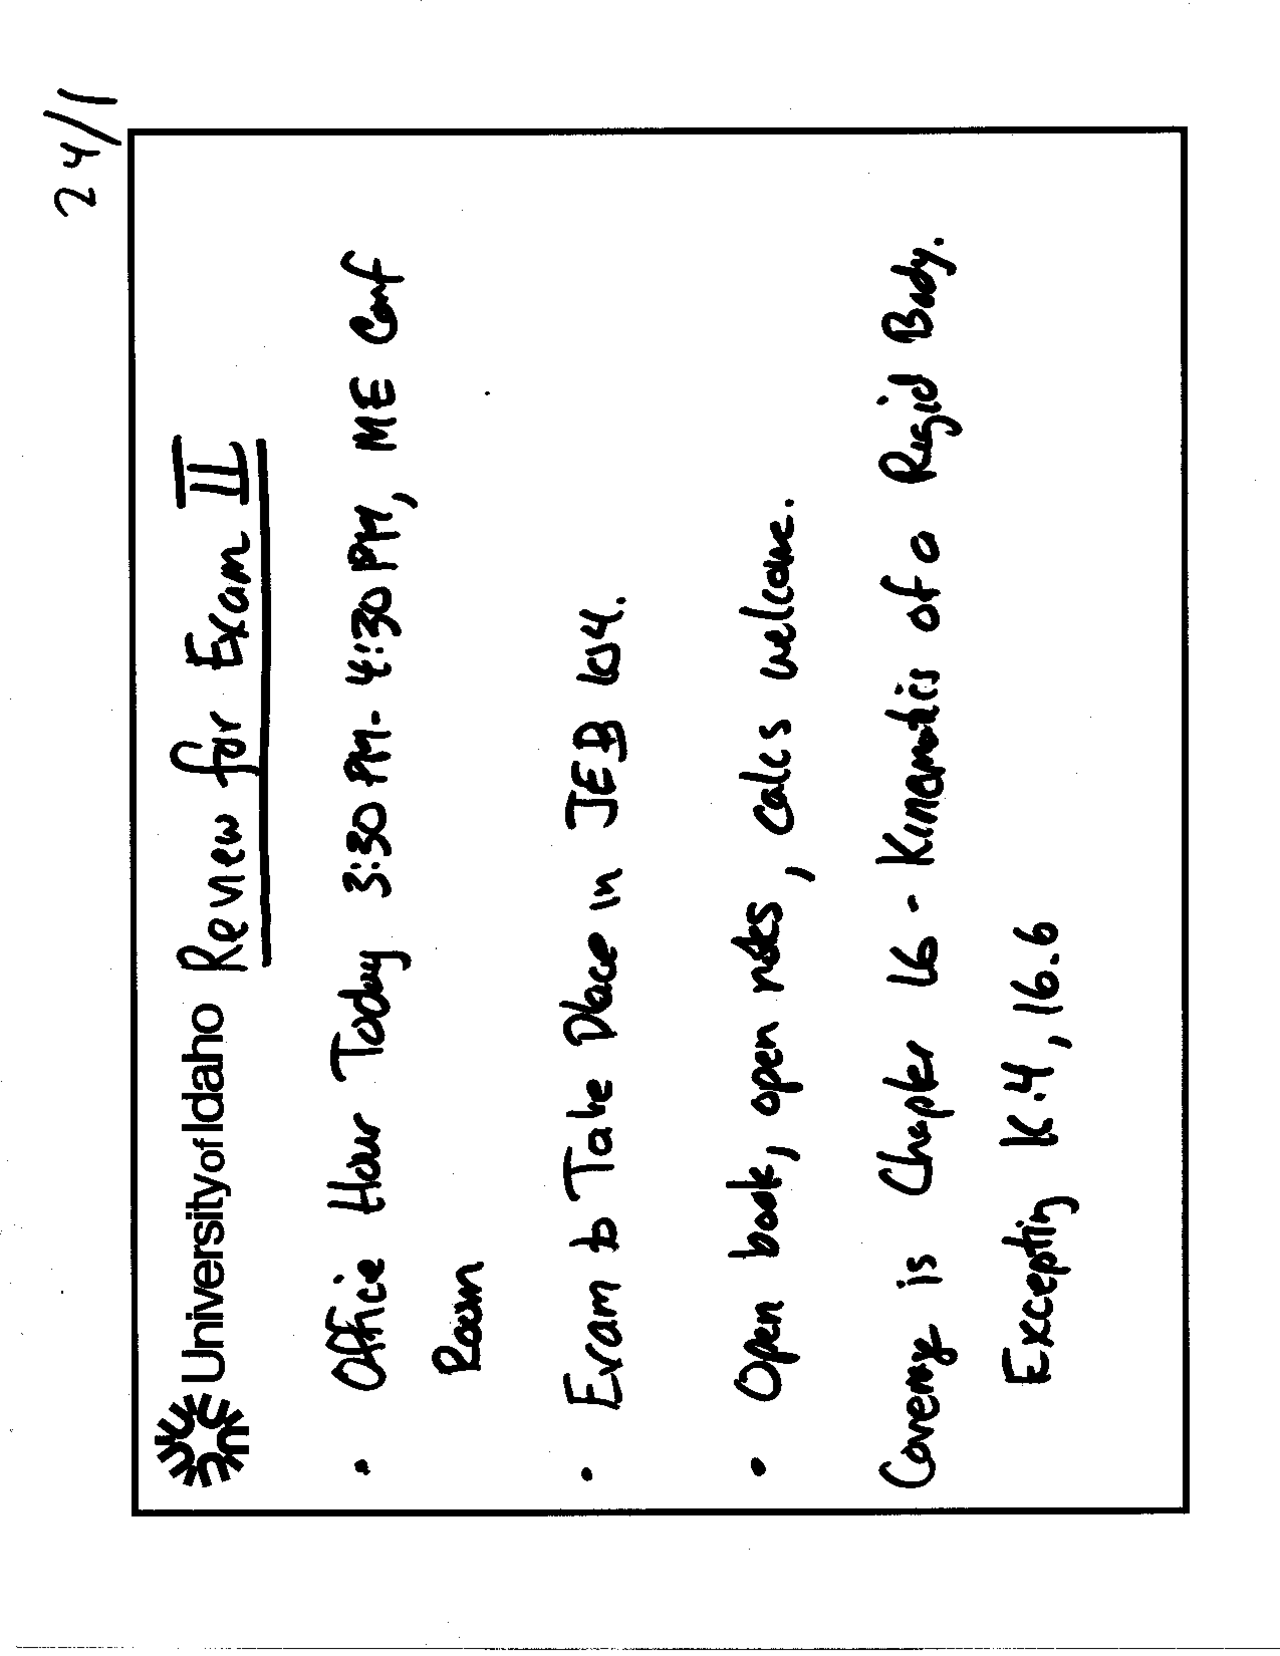 24/1
University of Idaho Review for Exam II
• Office Hour Today 3:30 PM - 4:30 PM, ME Conf
Room
• Exam to Take Place in JEB 104.
• Open book, open notes, calcs welcome.
Coverage is Chapter 16 - Kinematics of a Rigid Body.
Excepting 16.4, 16.6